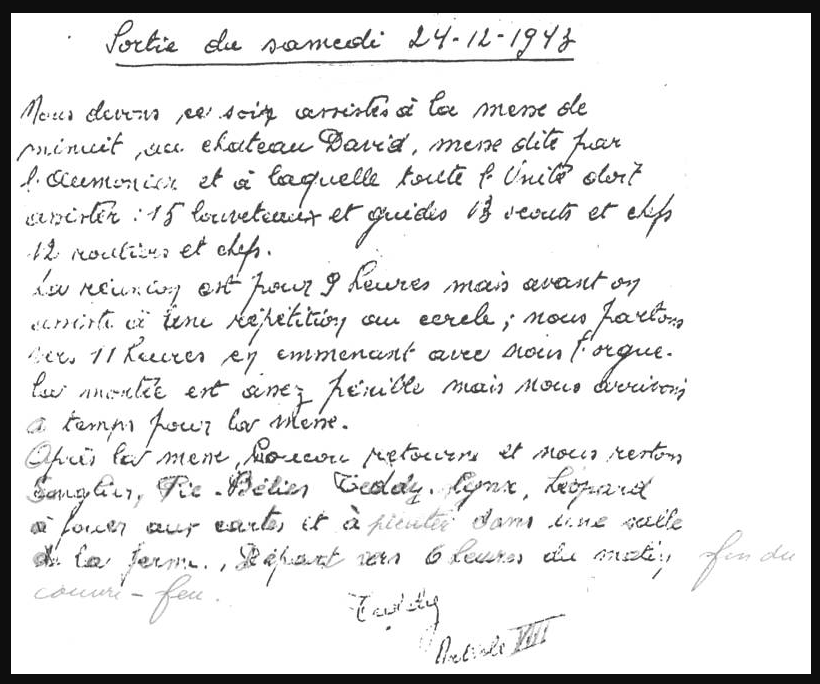 Sortie du samedi 24-12-1943
Nous devons ce soir assister à la messe de
minuit, au chateau David, messe dite par
l'Aumonier et à laquelle toute l'Unité doit
assister : 15 louveteaux et guides 13 scouts et chefs
12 routiers et chefs.
La réunion est pour 9 heures mais avant on
assiste à une répétition au cercle ; nous partons
vers 11 heures en emmenant avec nous l'orgue.
La montée est assez pénible mais nous arrivons
à temps pour la messe.
Après la messe, retourne et nous restons
Sanglier, Pie - Bélier Teddy. Lynx, Léopard
à jouer aux cartes et à dans une salle
de la ferme., Départ vers 6 heures du matin fin du
couvre-feu.
Teddy
VIII